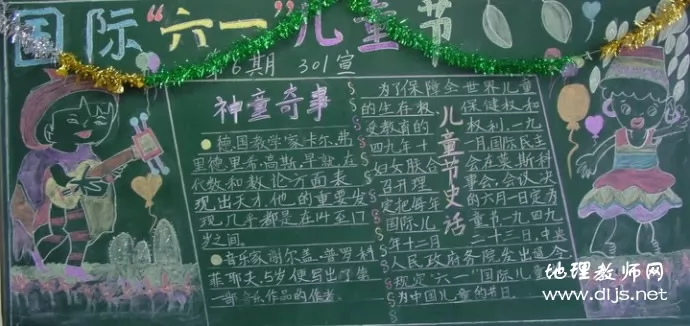 国际“六一”儿童节
第6期 301宣
神童奇事
德国数学家卡尔.弗
里德.里希.高斯.早就.在
代数和数论方面表
现.出天才.他.的重要发
现.几乎都是在14至17
岁之间.
音乐家.谢尔盖.普罗科
菲耶夫.5岁便写出了
部音乐作品的作者.
儿童节史话
为了保障全世界儿童
的生存权 保健权和
受教育的 权利.一九
四九年十 一月国际民主
妇女联合 会在莫斯科
召开理 事会,会议决
定把每年 的六月一日定为
国际儿 童节一九四九
年十二月 二十三日,中央
人民政府务院发出通令
规定“六一”国际儿童
为中国儿童的节日.
地理教师网
www.dljs.net